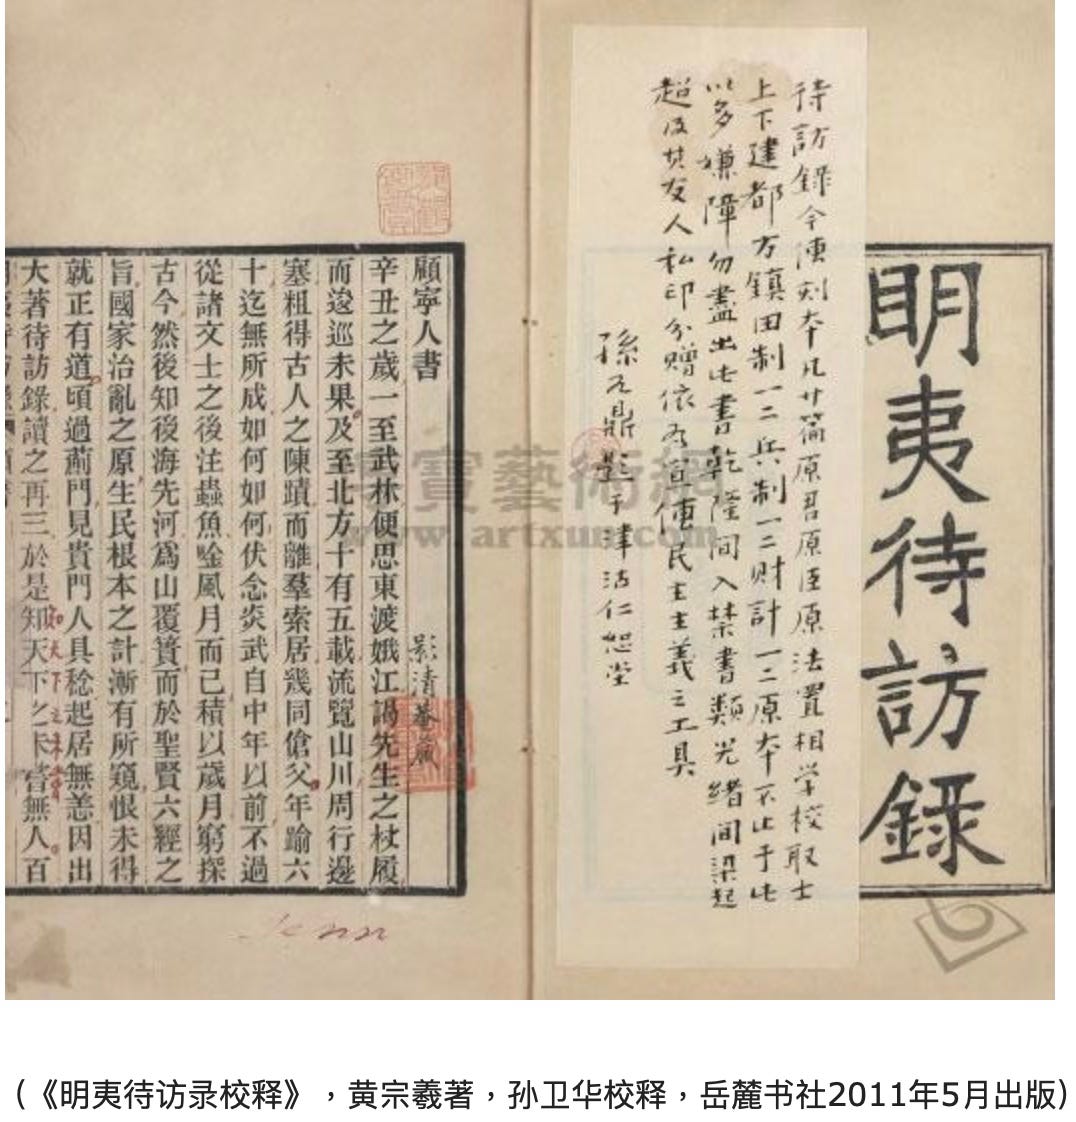 明夷待訪錄
待訪錄今傳刻本凡廿篇原君原臣原法置相学校取士
上下建都方鎮田制一二兵制一二財計一二原本不止于此
以多嫌障勿盡出此書乾隆間入禁書類光緒間梁起
超及其友人私印分赠依为宣傳民主主義之工具
孫元鼎題于津沽仁恕堂
顧寧人書
影清菴藏
辛丑之歲一至武林便思東渡娥江謁先生之杖履
而逡巡未果及至北方十有五載流覽山川周行邊
塞粗得古人之陳蹟而離羣索居幾同傖父年踰六
十迄無所成如何如何伏念炎武自中年以前不過
從諸文士之後注蟲魚唫風月而已積以歲月窮探
古今然後知後海先河爲山覆簣而於聖賢六經之
旨國家治亂之原生民根本之計漸有所窺恨未得
就正有道頃過薊門見貴門人具稔起居無恙因出
大著待訪錄讀之再三於是知天下之未嘗無人百
寶藝術網
www.artxun.com
（《明夷待访录校释》，黄宗羲著，孙卫华校释，岳麓书社2011年5月出版）